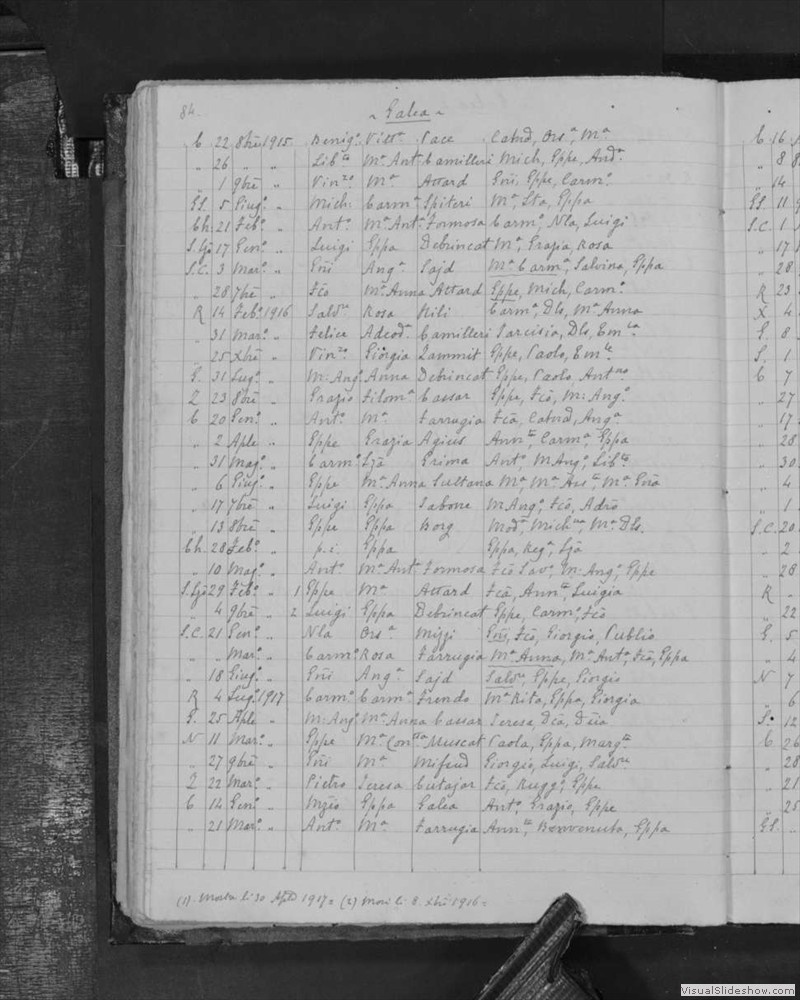 84.
~ Galea ~
C 22 8bre 1915 Benig.o Vitt.a Pace Catnd, Ors.a, M.a
" 26 " " Lib.to M.a Ant. Camilleri Mich, Eppe, And.a
" 1 9bre " Vin.zo M.a Attard Gni, Eppe, Carm.o
GS. 5 Giug.o " Mich: Carm.a Spiteri M.a Sta, Eppa
Ch. 21 Feb.o " Ant.o M.a Ant. Formosa Carm.o, Nla, Luigi
S.Lzo 17 Gen.o " Luigi Eppa Debrincat M.a, Grazia, Rosa
S.C. 3 Mar.o " Gni Ang.a Sajd M.a Carm.a, Salvina, Eppa
" 28 7bre " Fco M.a Anna Attard Eppe, Mich, Carm.o
R 14 Feb.o 1916 Salv.u Rosa Hili Carm.a, Dls, M.a Anna
" 31 Mar.o " Felice Adeod.a Camilleri Tarcisia, Dls, Em.la
" 25 Xbre " Vin.zo Giorgia Zammit Eppe, Paolo, Em.le
G. 31 Lug.o " M: Ang.o Anna Debrincat Eppe, Paolo, Ant.no
Z 23 8bre " Grazio Filom.a Cassar Eppe, Fco, M: Ang.o
C 20 Gen.o " Ant.o M.a Farrugia Fca, Catnd, Ang.a
" 2 Aple " Eppe Grazia Agius Ann.ta Carm.a Eppa
" 31 Mag.o " Carm.o Lza Grima Ant.o, M Ang.o, Lib.to
" 6 Giug.o " Eppe M.a Anna Sultana M.a, M.a Ass.ta, M.a Gna
" 17 7bre " Luigi Eppa Sabone M Ang.o, Fco, Adro
" 13 8bre " Eppe Eppa Borg Mod.a, Mich.na, M.a Dls.
Ch. 28 Feb.o " p.i. Eppa Eppa, Reg.a, Lza
" 10 Mag.o " Ant.o M.a Ant. Formosa Fco Sav.o, M: Ang.o, Eppe
S.Lzo 29 Feb.o " 1 Eppe M.a Attard Fca, Ann.ta, Luigia
" 4 9bre " 2 Luigi Eppa Debrincat Eppe, Carm.o, Fco
S.C. 21 Gen.o " Nla Ors.a Mizzi Gni, Fco, Giorgio, Publio
" " Mar.o " Carm.o Rosa Farrugia M.a Anna, M.a Ant.a, Fca, Eppa
" 18 Giug.o " Gni Ang.a Sajd Salv.u, Eppe, Giorgio
R 4 Lug.o 1917 Carm.o Carm.a Trendo M.a Rita, Eppa, Giorgia
G. 25 Aple " M: Ang.o M.a Anna Cassar Teresa, Dca
N 11 Mar.o " Eppe M.a Con.tta Muscat Paola, Eppa, Marg.ta
" 27 9bre " Gni M.a Mifsud Giorgio, Luigi, Salv.u
Z 22 Mar.o " Pietro Teresa Cutajar Fco, Rugg.o, Eppe
C 14 Gen.o " Nzio Eppa Galea Ant.o, Grazio, Eppe
" 21 Mar.o " Ant.o M.a Farrugia Ann.ta, Benvenuta, Eppa
(1) Morta li 30 Aple 1917 = (2) Morì li 8. Xbre 1916 =
C 16
" 8
" 14
GS. 11
S.C. 1
" 17
" 28
R 23
X 4
G. 8
S. 1
C 7
" 27
" 17
" 28
" 30
" 4
" 1
S.C. 20
" 2
" 28
R
" 22
G. 5
" 4
N 7
" 6
S. 12
C 26
" 28
" 21
" 25
GS.
VisualSlideshow.com